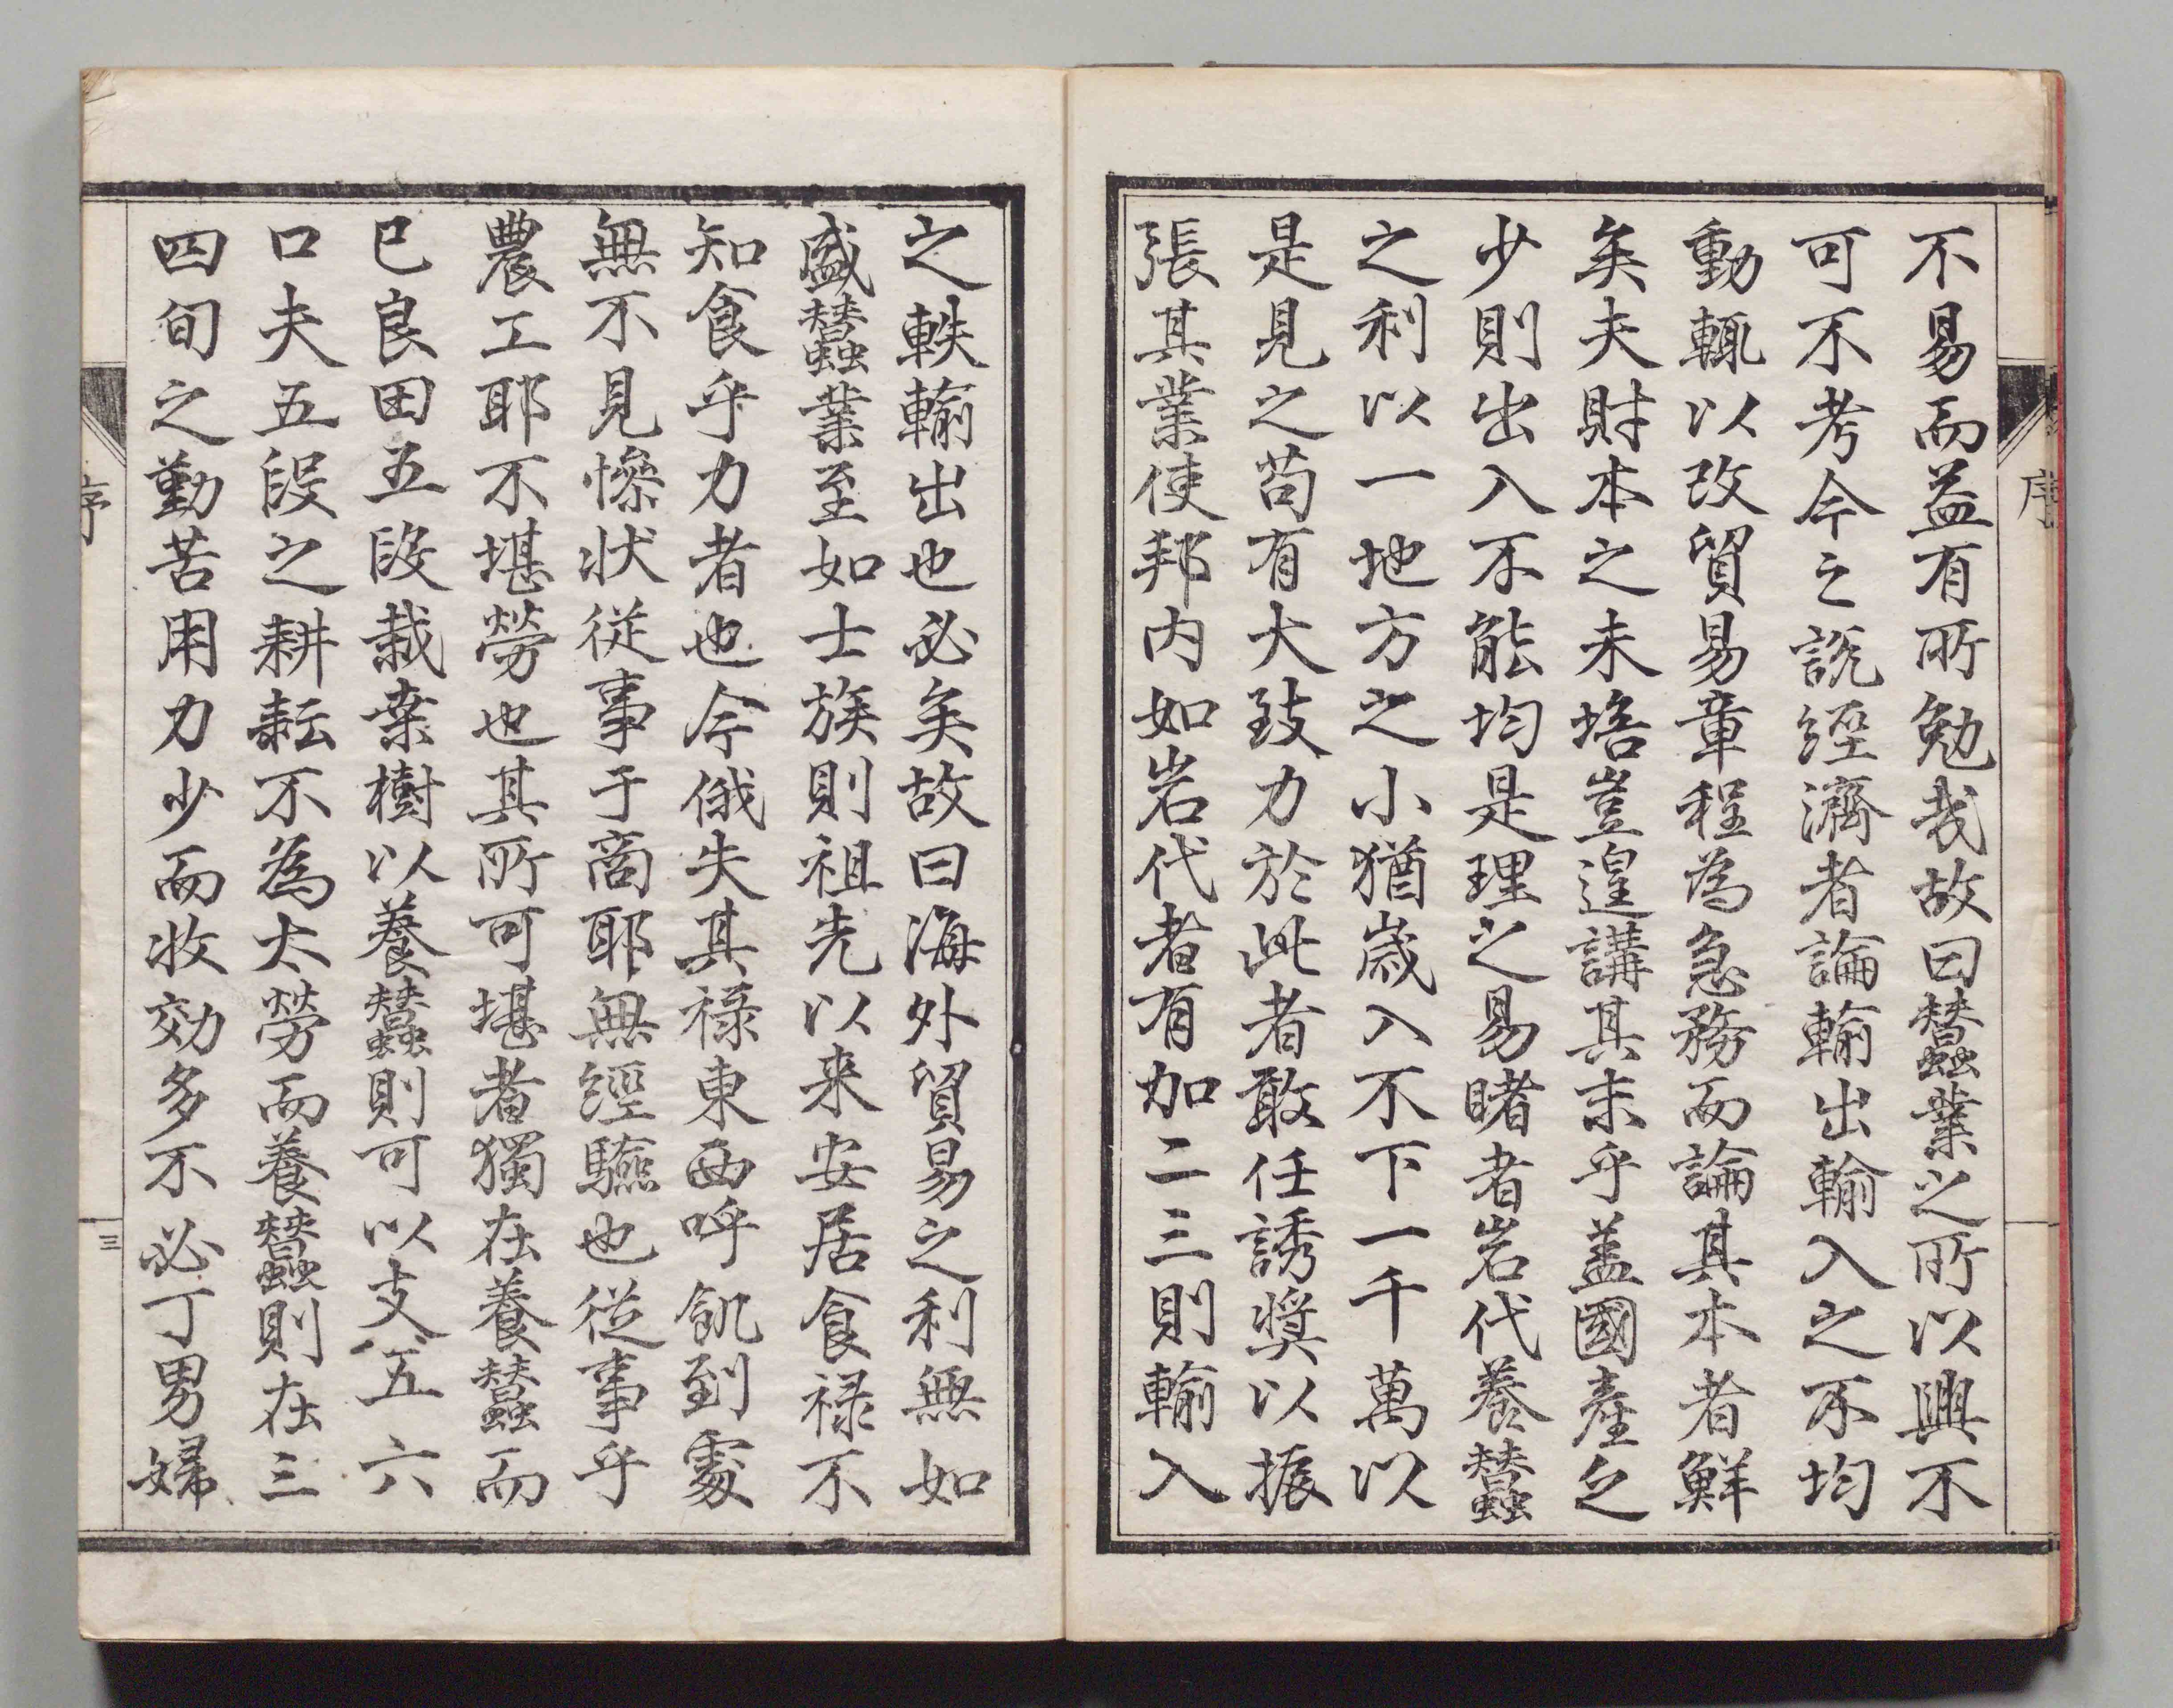 不易而益有所勉哉故曰蠶業之所以興不
可不考今之説經濟者論輸出輸入之不均
動輒以改貿易章程為急務而論其本者鮮
矣夫財本之未培豈遑講其末乎盖國產之
少則出入不能均是理之易睹者岩代養蠶
之利以一地方之小猶歳入不下一千萬以
是見之苟有大致力於此者敢任誘奬以振
張其業使邦内如岩代者有加二三則輸入
序
之軼輸出也必矣故曰海外貿易之利無如
盛蠶業至如士族則祖先以来安居食祿不
知食乎力者也今俄失其祿東西呼飢到處
無不見慘状従事于商耶無經驗也従事乎
農工耶不堪勞也其所可堪者獨在養蠶而
已良田五段栽桑樹以養蠶則可以支五六
口夫五段之耕耘不為太勞而養蠶則在三
四旬之勤苦用力少而收効多不必丁男婦
序
三